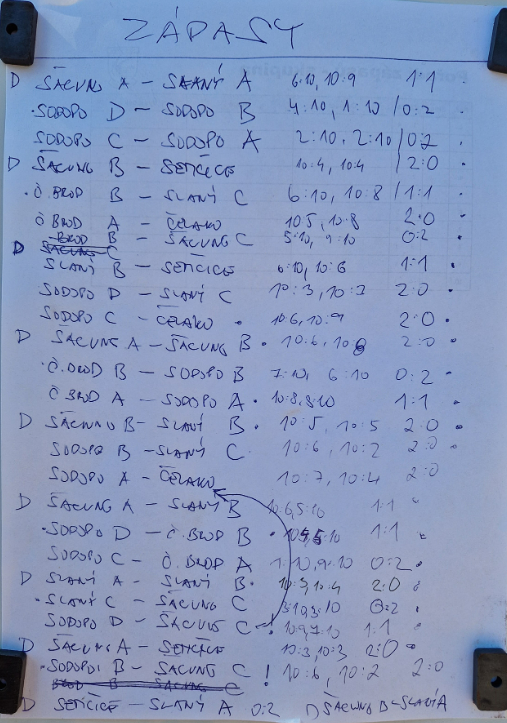 ZÁPASY
D ŠACUNG A - SLANÝ A 6:10, 10:9 1:1
SODOPO D - SODOPO B 4:10, 1:10 / 0:2
SODOPO C - SODOPO A 2:10, 2:10 / 0:2
D ŠACUNG B - SEMČICE 10:4, 10:4 / 2:0
Č.BROD B - SLANÝ C 6:10, 10:8 / 1:1
Č BROD A - ČELAKO 10:5, 10:8 2:0
BROD B - ŠACUNG C 5:10, 9:10 0:2
D ŠACUNG C
SLANÝ B - SEMČICE 6:10, 10:6 1:1
SODOPO D - SLANÝ C 10:3, 10:3 2:0
SODOPO C - ČELAKO 10:6, 10:9 2:0
D ŠACUNG A - ŠACUNG B 10:6, 10:8 2:0
Č.BROD B - SODOPO B 7:10, 6:10 0:2
Č BROD A - SODOPO A 10:8, 8:10 1:1
D ŠACUNG B - SLANÝ B 10:5, 10:5 2:0
SODOPO B - SLANÝ C 10:6, 10:2 2:0
SODOPO A - ČELAKO 10:7, 10:4 2:0
D ŠACUNG A - SLANÝ B 10:6, 5:10 1:1
SODOPO D - Č.BROD B 1:1
SODOPO C - Č.BROD A 1:10, 9:10 0:2
D SLANÝ A - SLANÝ B 10:3, 10:4 2:0
SLANÝ C - ŠACUNG C 0:2
SODOPO D - ŠACUNG C 1:1
D ŠACUNG A - SEMČICE 10:3, 10:3 2:0
SODOPO B - ŠACUNG C ! 10:6, 10:2 2:0
BROD B - ŠACUNG C
D SEMČICE - SLANÝ A 0:2 D ŠACUNG B - SLANÝ A